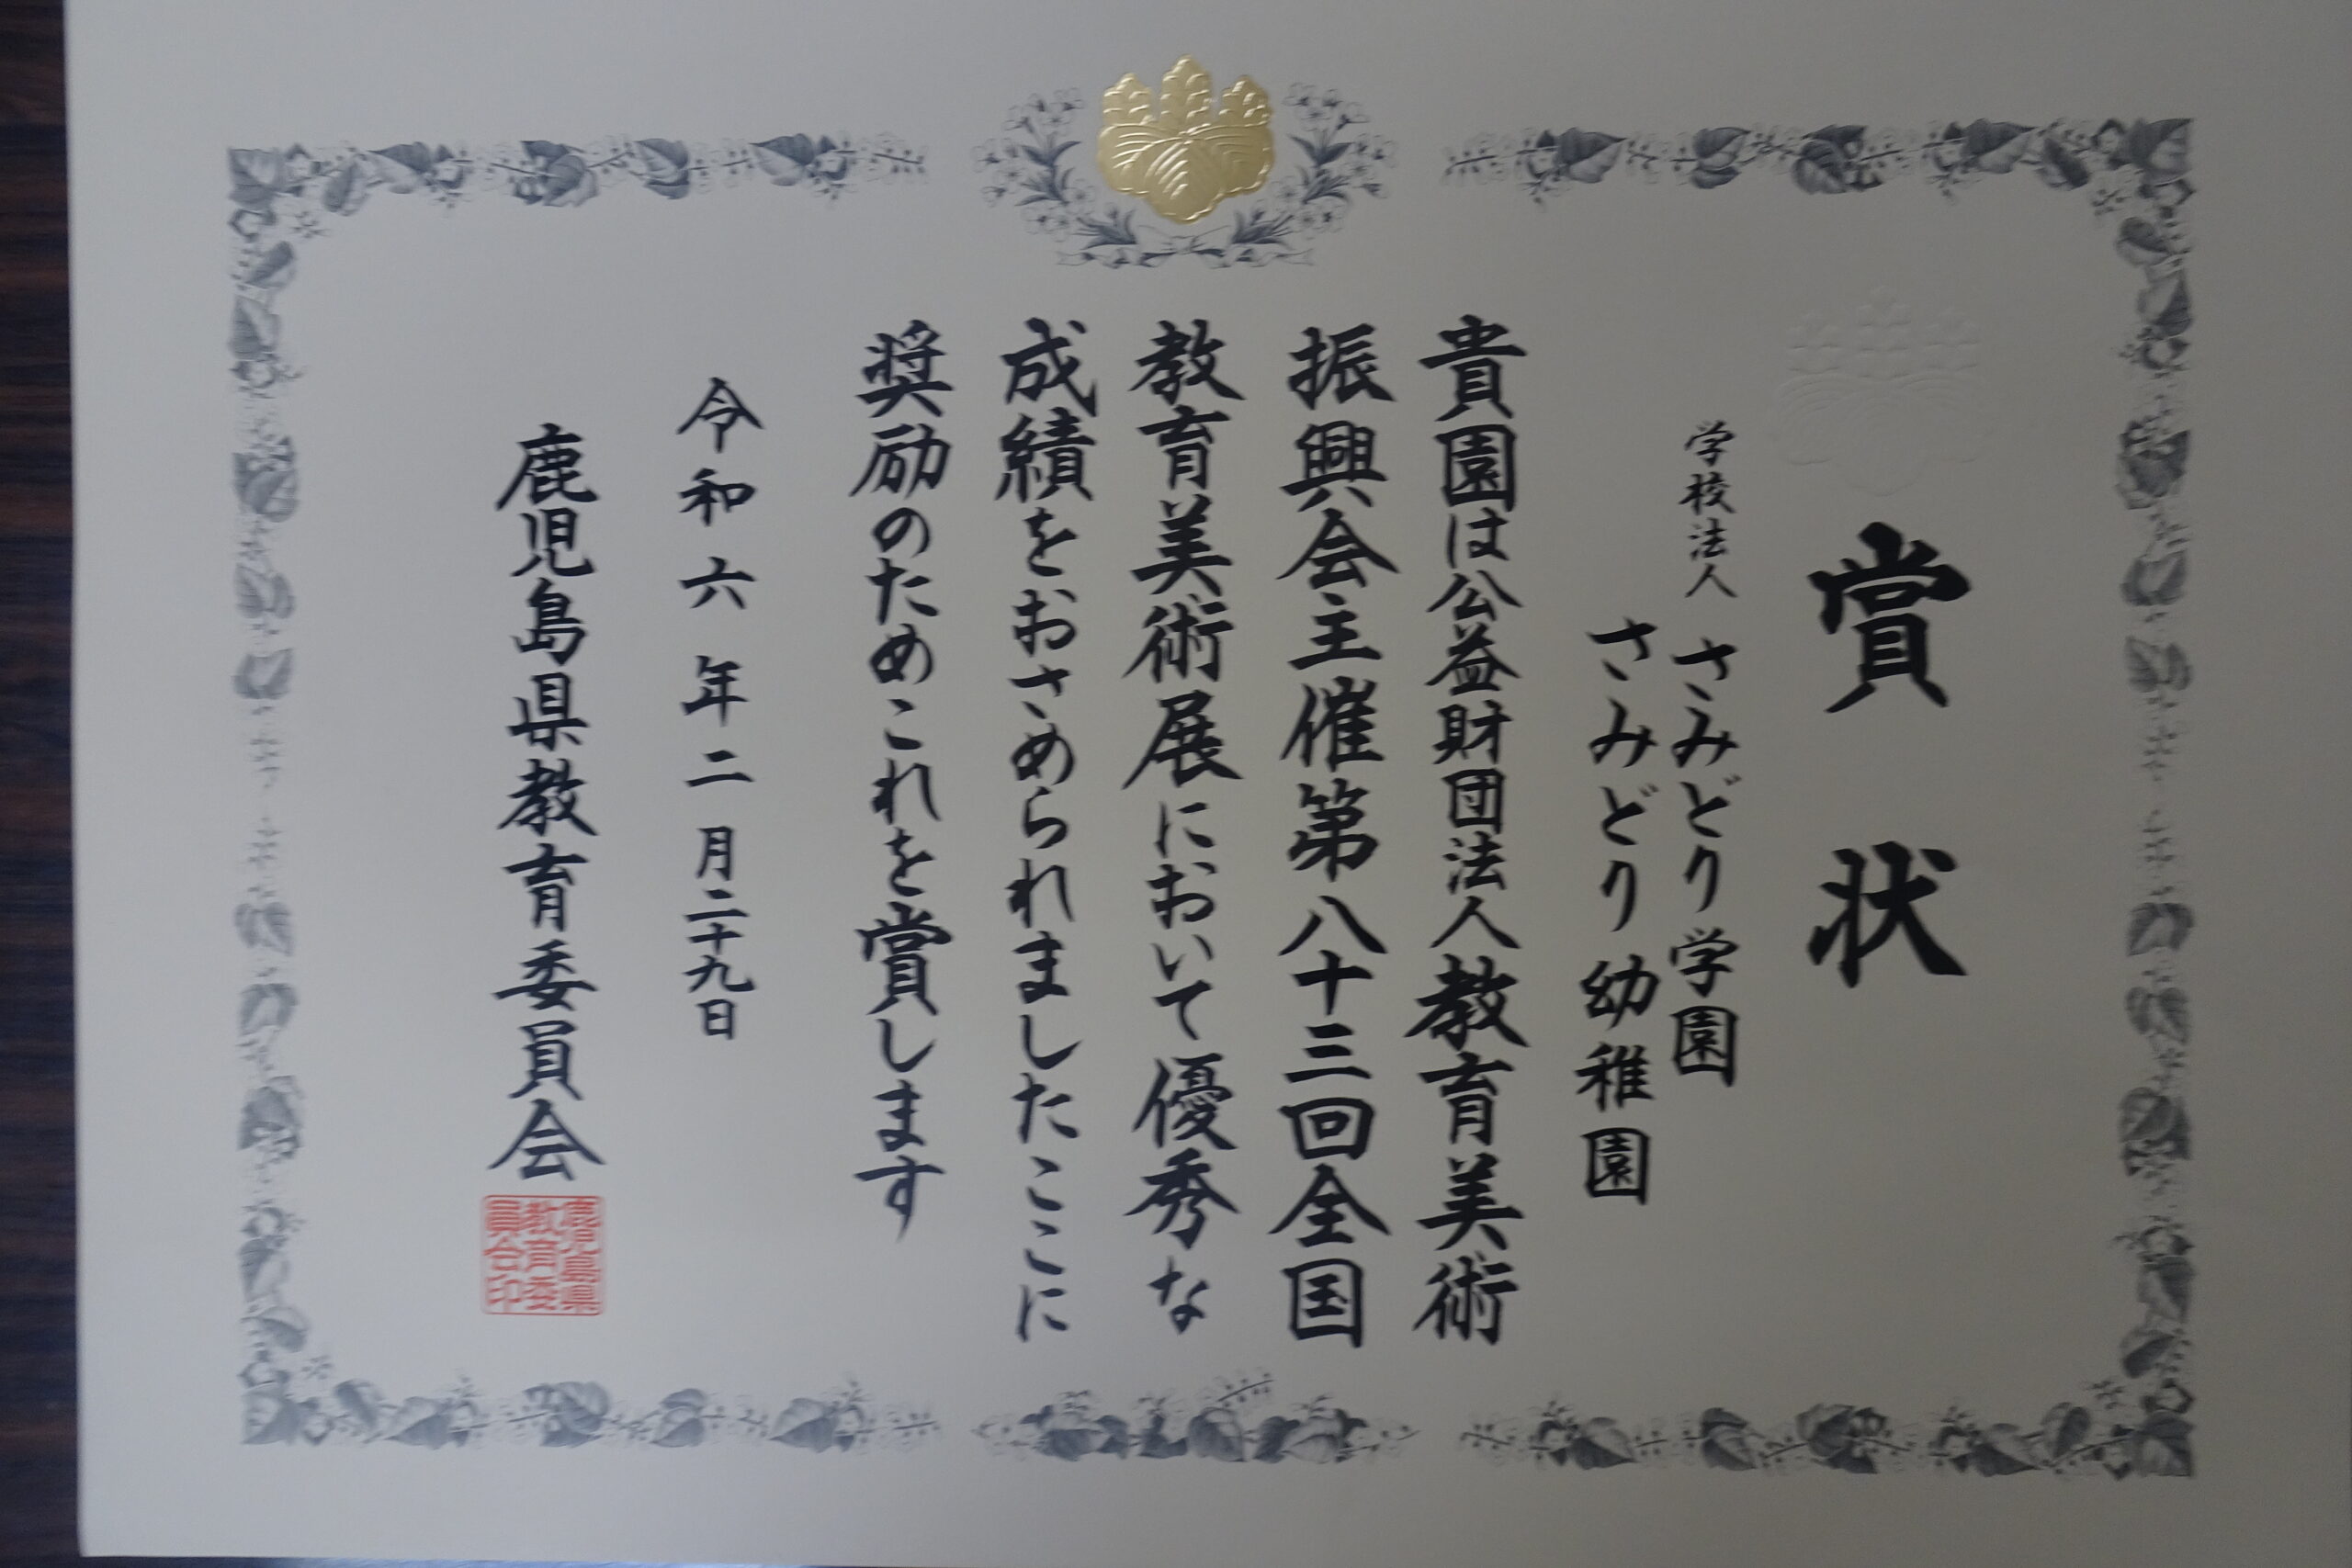 賞状
学校法人 さみどり学園
さみどり幼稚園
貴園は公益財団法人教育美術
振興会主催第八十三回全国
教育美術展において優秀な
成績をおさめられましたここに
奨励のためこれを賞します
令和六年二月二十九日
鹿児島県教育委員会
鹿児島県
教育委
員会印